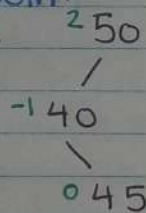 2 50
-1 40
0 45